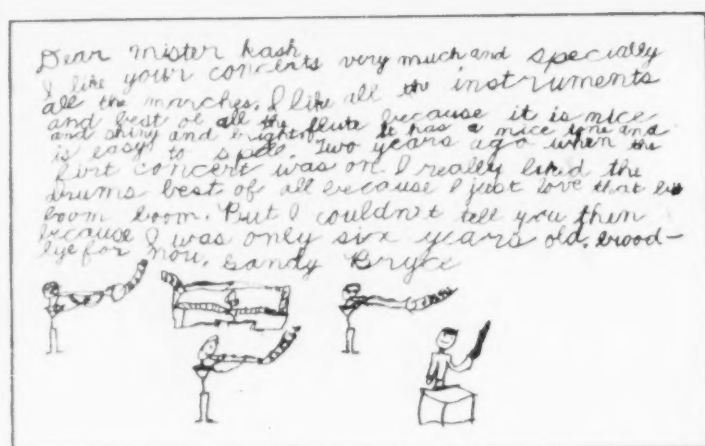 Dear mister Kash
I like your concerts very much and specially
all the marches. I like all the instruments
and best of all the flute because it is nice
and shiny and bright. It has a nice tone and
is easy to spell. Two years ago when the
first concert was on I really liked the
drums best of all because I just love that
boom boom. But I couldn't tell you then
because I was only six years old. Good-
bye for now, Sandy Bryce